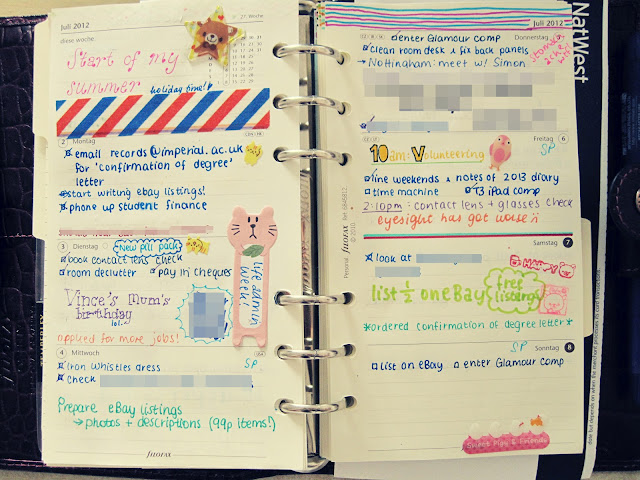 Juli 2012
27. Woche
diese woche
Start of my
summer
holiday time!
2 Montag
email records@imperial.ac.uk
for 'confirmation of degree'
letter
start writing ebay listings!
phone up student finance
3 Dienstag
New pill pack
book contact lens check
room declutter
pay in cheques
Vince's Mum's
birthday
lol.
applied for more jobs!
life admin
week!
4 Mittwoch
USA
iron whistles dress
SP
check
Prepare eBay listings
→ photos + descriptions (99p items!)
FILOFAX
Personal
FILOFAX
© 2010
Juli 2012
Donnerstag
enter Glamour comp
clean room desk & fix back panels
→ Nottingham: meet w/ Simon
Freitag 6
10am: Volunteering
SP
line weekends & notes of 2013 diary
time machine
T3 iPad comp
2:10pm: contact lens + glasses check
eyesight has got worse
Samstag 7
look at
HAPPY
list ½ on eBay
free
listings
*ordered confirmation of degree letter*
SP
Sonntag 8
list on eBay
enter Glamour comp
FILOFAX
NatWest